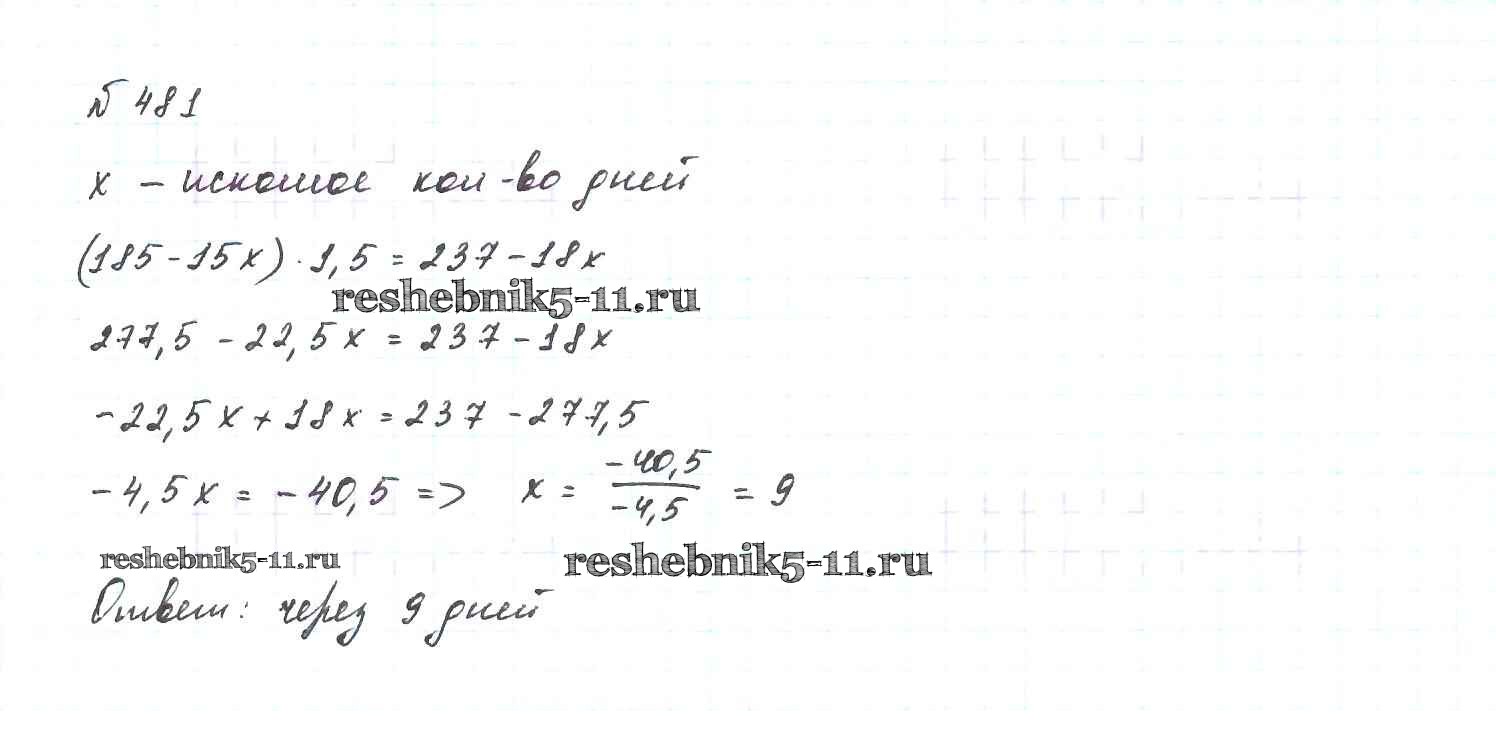 № 481
x – искомое кол-во дней
(185-15x)·1,5=237-18x
reshebnik5-11.ru
277,5 -22,5x=237-18x
-22,5x+18x=237-277,5
-4,5x=-40,5=> x= -40,5/-4,5 = 9
reshebnik5-11.ru reshebnik5-11.ru
Ответ: через 9 дней